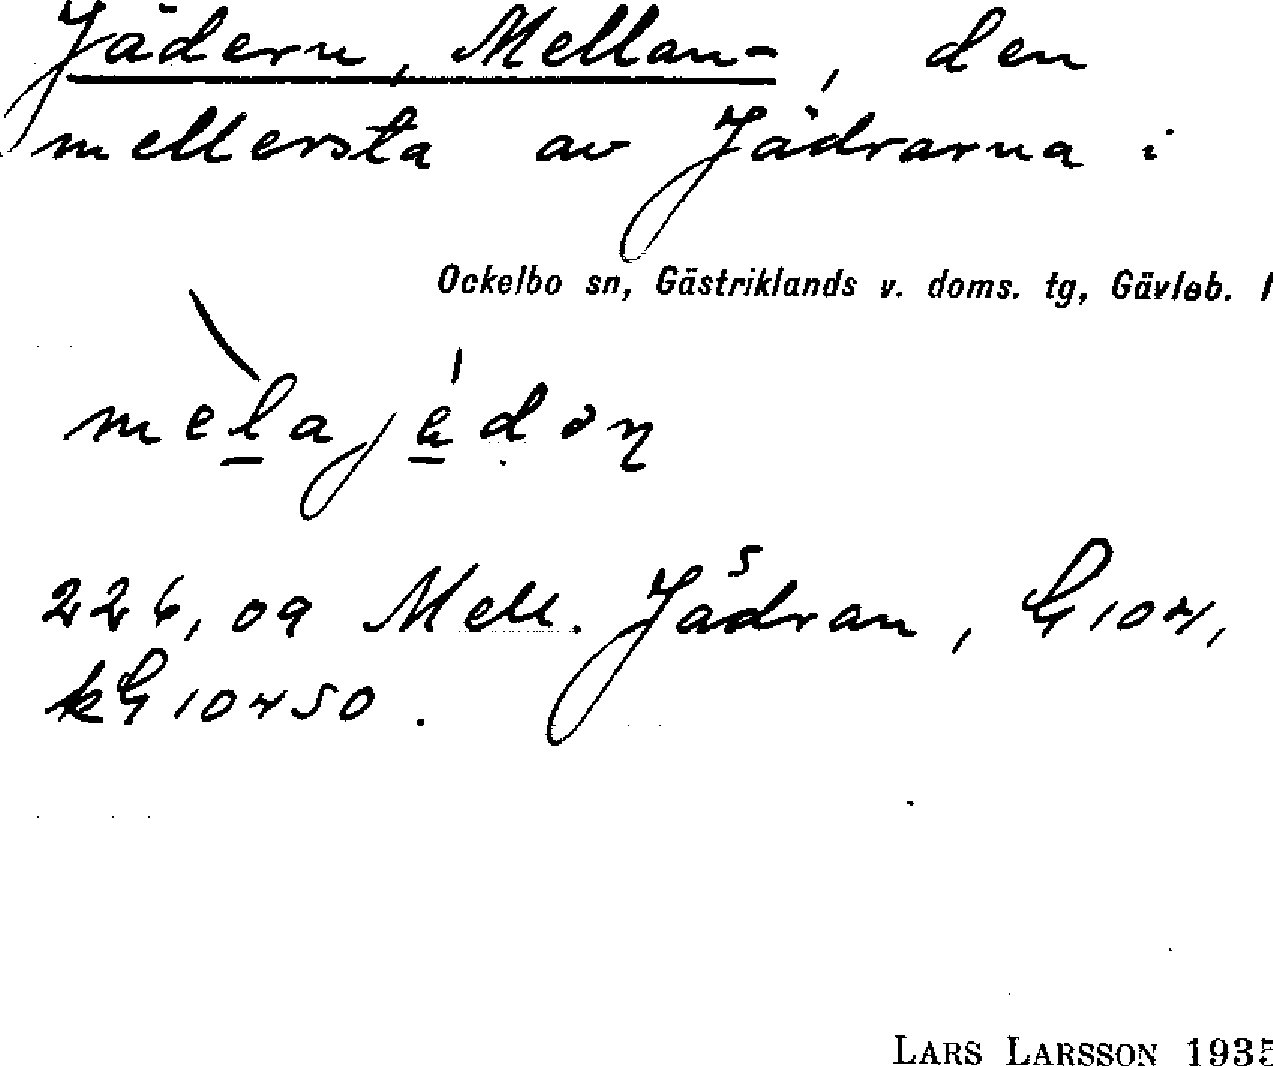 Jädern, Mellan-, den
mellersta av Jädrarna i
Ockelbo sn, Gästriklands v. doms. tg, Gävleb.
226,09 Mell. Jädran, G 104,
kG 10450.
LARS LARSSON 1935